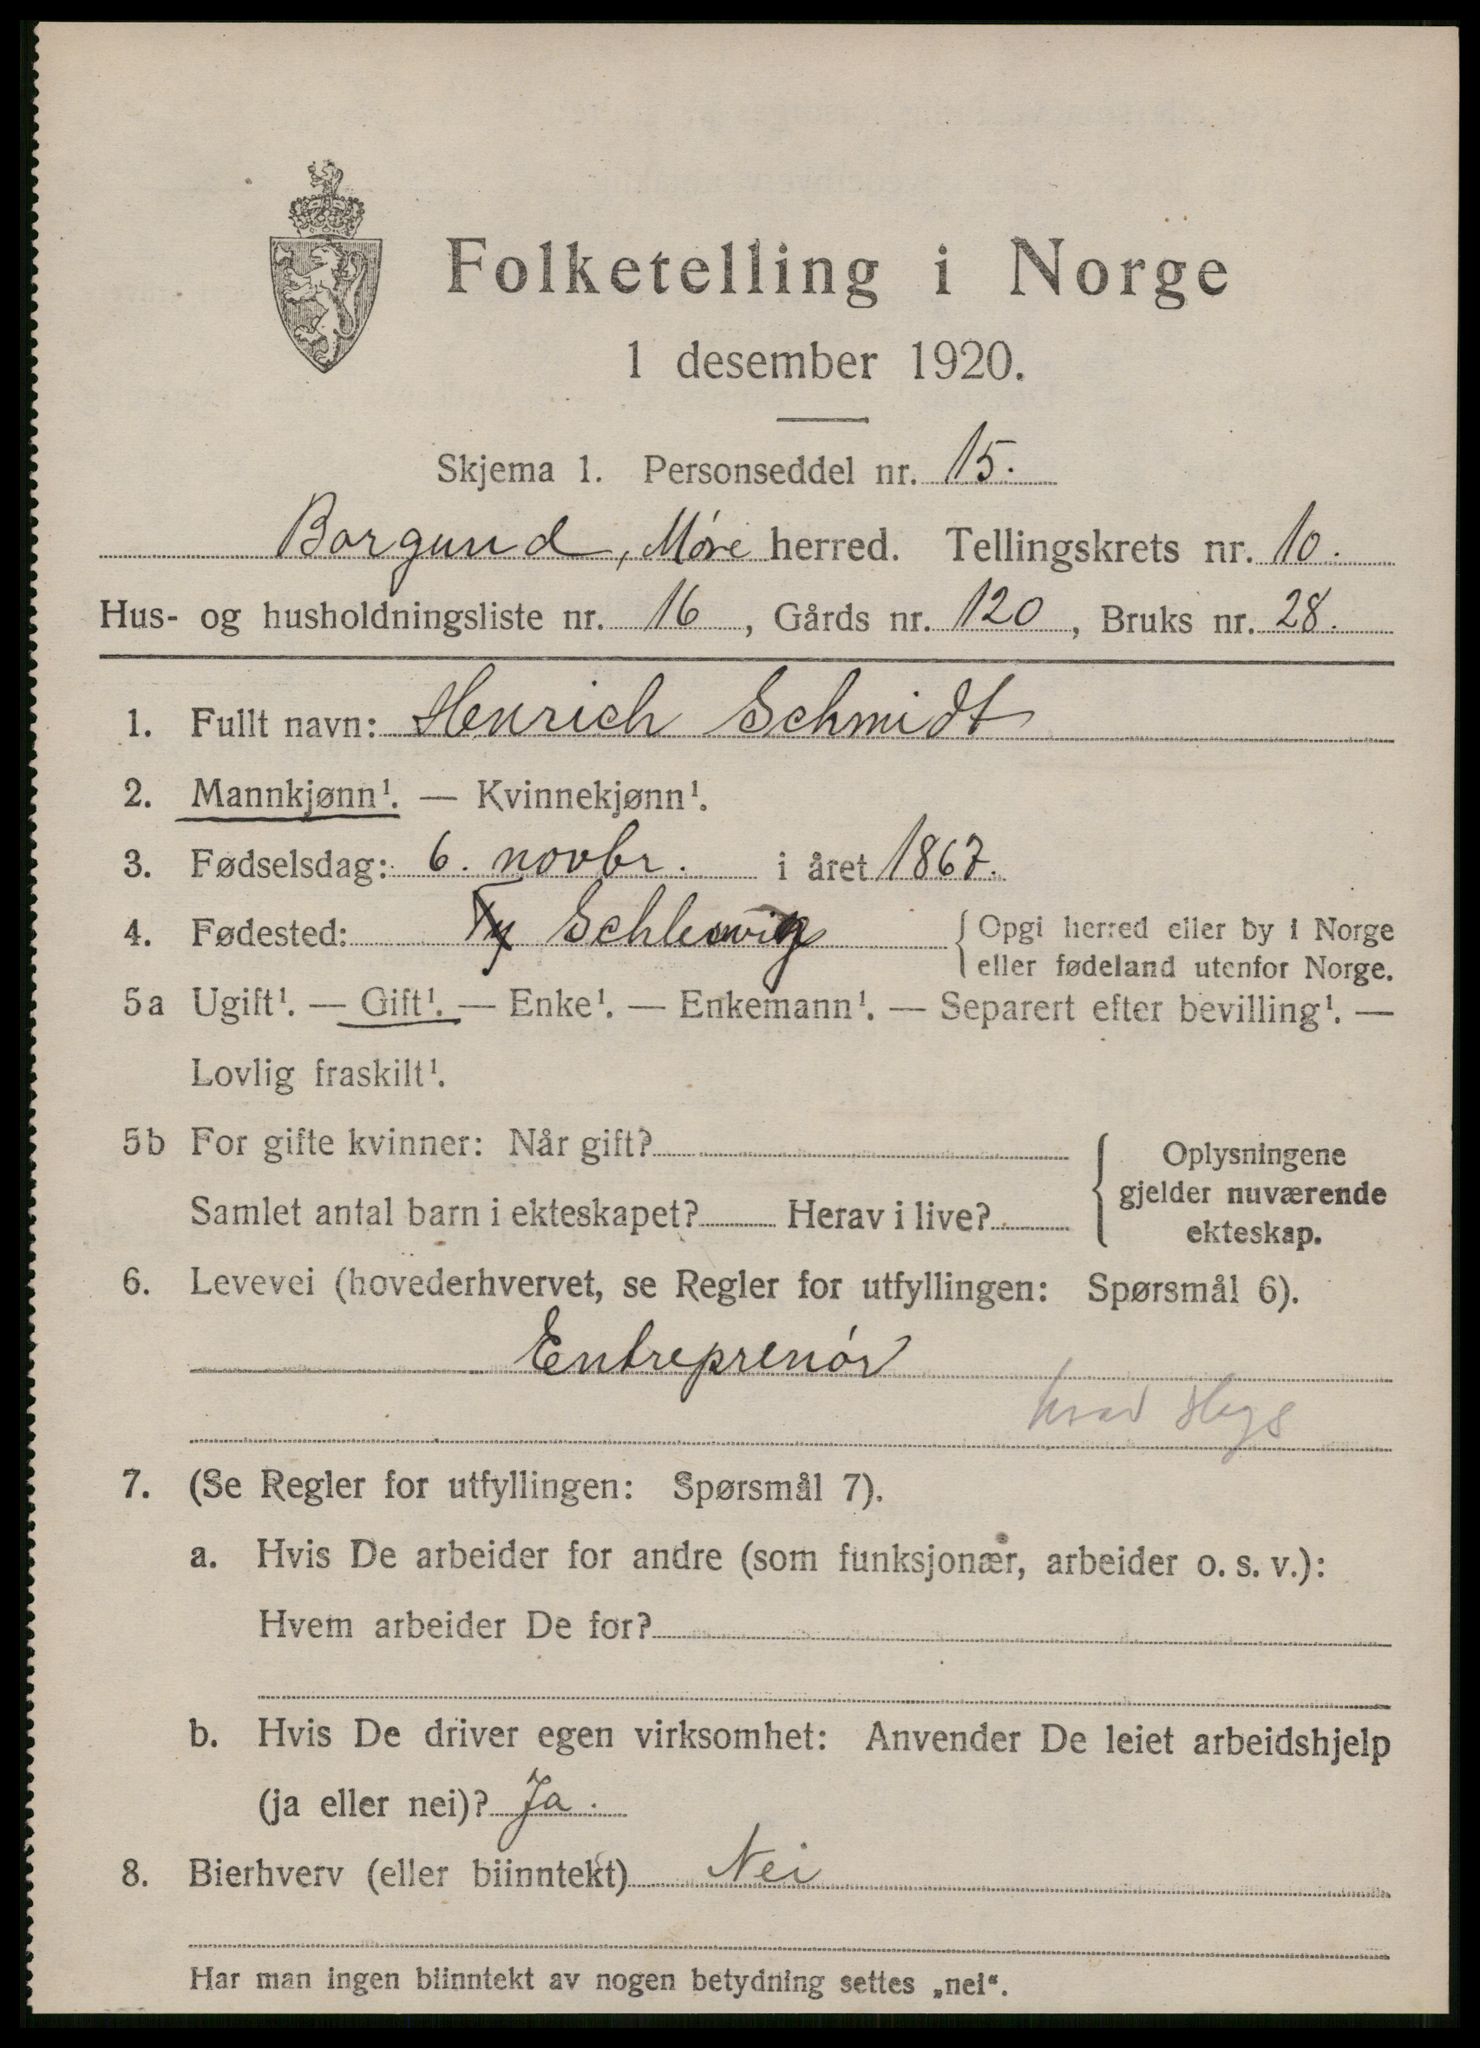 Folketelling i Norge
1 desember 1920.
Skjema 1. Personseddel nr. 15.
Borgund, Møre herred. Tellingskrets nr. 10.
Hus- og husholdningsliste nr. 16, Gårds nr. 120, Bruks nr. 28.
1. Fullt navn: Henrich Schmidt
2. Mannkjønn¹. — Kvinnekjønn¹.
3. Fødselsdag: 6. novbr. i året 1867.
4. Fødested: Schleswig
Opgi herred eller by i Norge
eller fødeland utenfor Norge.
5a Ugift¹. — Gift¹. — Enke¹. — Enkemann¹. — Separert efter bevilling¹. —
Lovlig fraskilt¹.
5b For gifte kvinner: Når gift?
Samlet antal barn i ekteskapet? Herav i live?
Oplysningene
gjelder nuværende
ekteskap.
6. Levevei (hovederhvervet, se Regler for utfyllingen: Spørsmål 6).
Entreprenør
hvad slags
7. (Se Regler for utfyllingen: Spørsmål 7).
a. Hvis De arbeider for andre (som funksjonær, arbeider o. s. v.):
Hvem arbeider De for?
b. Hvis De driver egen virksomhet: Anvender De leiet arbeidshjelp
(ja eller nei)? Ja.
8. Bierhverv (eller biinntekt) Nei
Har man ingen biinntekt av nogen betydning settes „nei“.